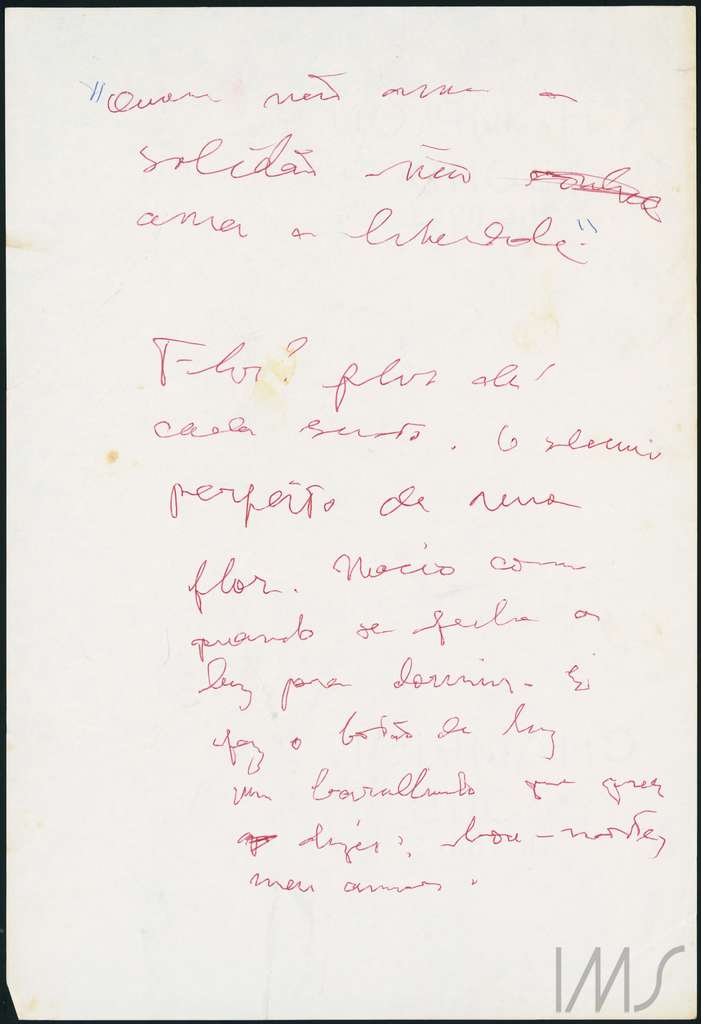 "Quem não ama a
solidão não
ama a liberdade."
Flor? flor dá
cada susto. O silêncio
perfeito de uma
flor. Macio como
quando se fecha a
luz para dormir. E
faz o botão da luz
um barulhinho que quer
dizer: boa-noite,
meu amor.
IMS